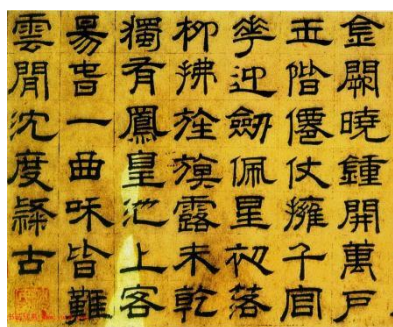 金闕曉鍾開萬戶
玉階僊仗擁千官
華迎劍佩星初落
柳拂旌旗露未乾
獨有鳳皇池上客
昜旾一曲咊皆難
雲閒沈度隸古